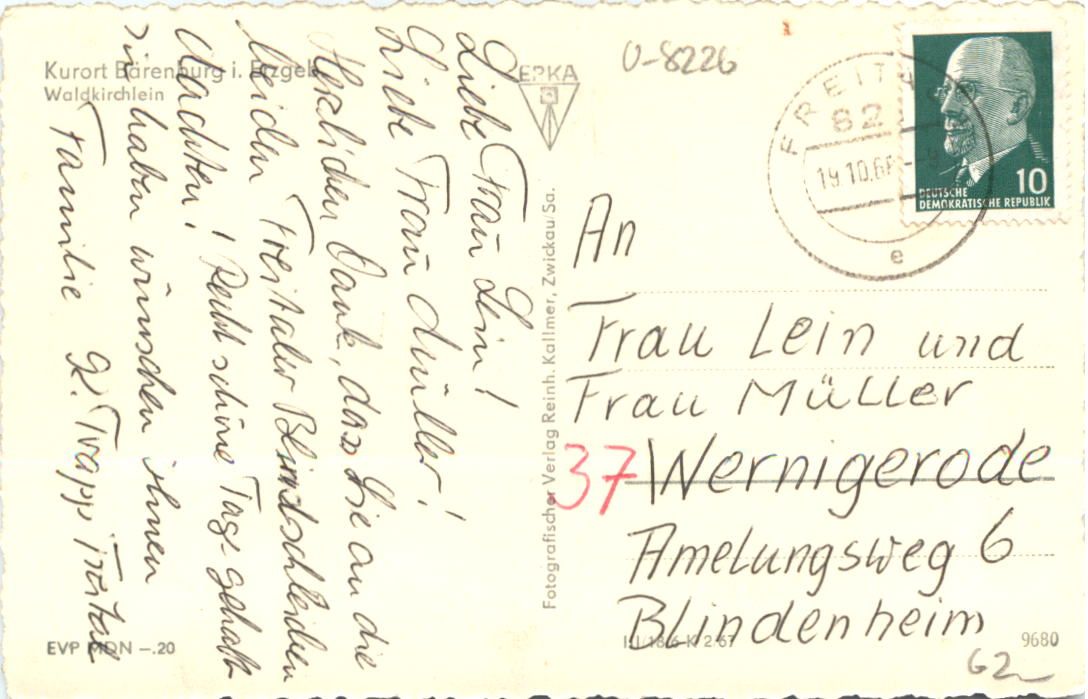 Kurort Bärenburg i. Erzgeb.
Waldkirchlein
ERKA
U-8226
FREITAL
82
19.10.66
e
10
DEUTSCHE
DEMOKRATISCHE REPUBLIK
Liebe Frau Lein!
Liebe Frau Müller!
Herzlichen Dank, dass Sie an die
beiden Freitaler Blindschleichen
dachten! Recht schöne Tage gehabt
zu haben wünschen ihnen
Familie K. Trapp Freital
Fotografischer Verlag Reinh. Kallmer, Zwickau/Sa.
An
Frau Lein und
Frau Müller
37 Wernigerode
Amelungsweg 6
Blindenheim
EVP MDN –.20
9680
62